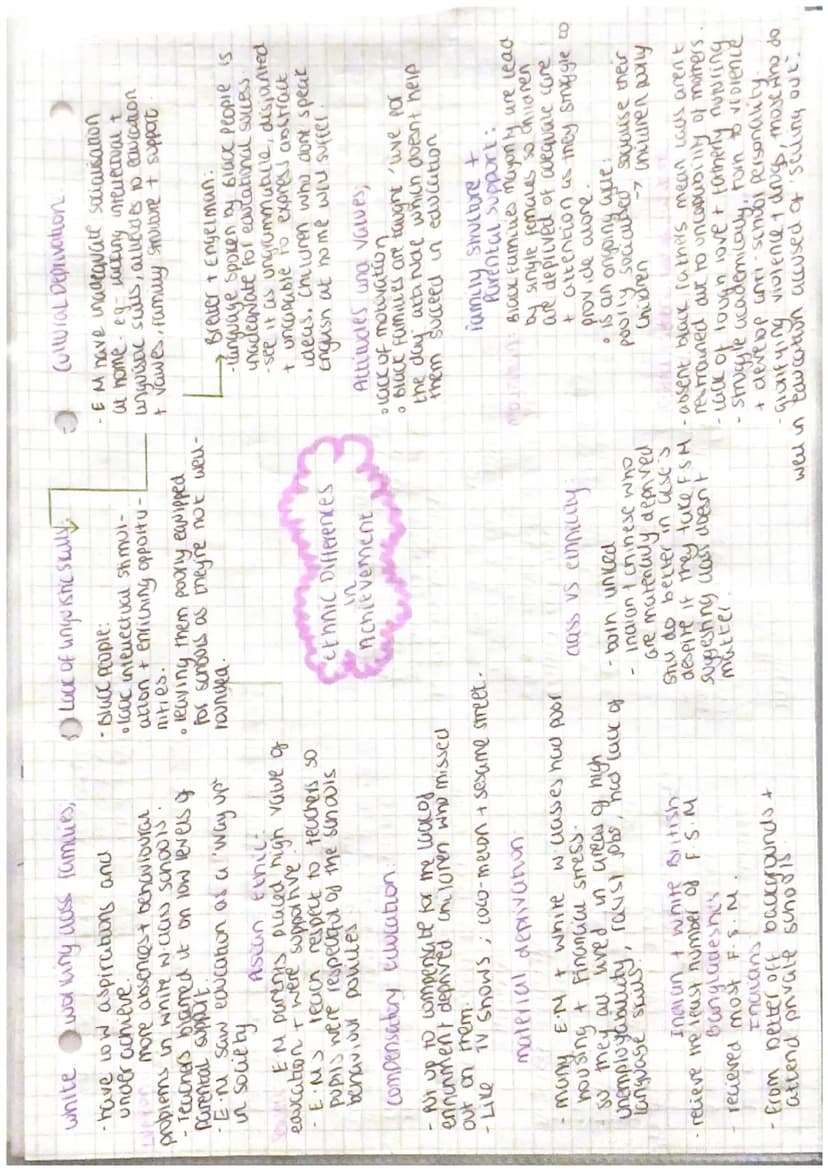 white working class families,
- have low aspirations and
underachieve.
more absences + behavioural
problems in white w-class schools.
- Teachers blamed it on low levels of
parental support
- E·M saw education as a 'way up'
in society
Asian Ethic:
E·M parents placed high value of
education + were supportive
- E·M's teach respect to teachers so
pupils were respectful of the schools
behaviour policies
compensatory education
- Put up to compensate for the lack of
enrichment deprived children who missed
out on them.
- Like TV shows ; coco-melon + sesame street.
material deprivation
- many E·M + white w classes had poor
housing + financial stress.
so they all lived in areas of high
unemployability, racist jobs, had lack of
language skills
Indian + white British
- recieve the least number of F·S·M
Bangladeshi's
- recieved most F·S·M.
Indians
- from better off backgrounds +
attend private schools
Lack of linguistic skills,
- Black people:
• lack intellectual stimul-
ation + enriching opportu-
nities.
• leaving them poorly equipped
for schools as they're not well-
rounded.
Ethnic Differences
in
Achievement
class vs ethnicity:
- both linked
- Indian + chinese who
are materially deprived
still do better in GCSE's
despite if they take F S M
suggesting class doesn't
matter.
Cultural Deprivation
- E M have inadequate socialisation
at home. eg: lacking intellectual +
linguistic skills, attitudes to education
+ values, family structure + support.
Breier + Engelman:
- language spoken by Black people is
inadequate for educational success
- see it as ungrammatical, disjointed
+ uncapable to express abstract
ideas. Children who dont speak
english at home will suffer.
Attitudes and values,
• lack of motivation
• Black families are taught 'live for
the day' attitude which doesn't help
them succeed in education
family structure +
Parental support:
Black families majority are lead
by single females so children
are deprived of adequate care
+ attention as they struggle to
provide alone.
• is an ongoing cycle:
poorly socialised socialise their
children → children poorly
- absent black fathers mean lads aren't
restrained due to uncapability of mothers.
- Lack of tough love + fatherly nurturing
- struggle academically, turn to violence
+ develop anti-school personality.
- Glorifying violence + drugs, those who do
well in education accused of 'selling out'.